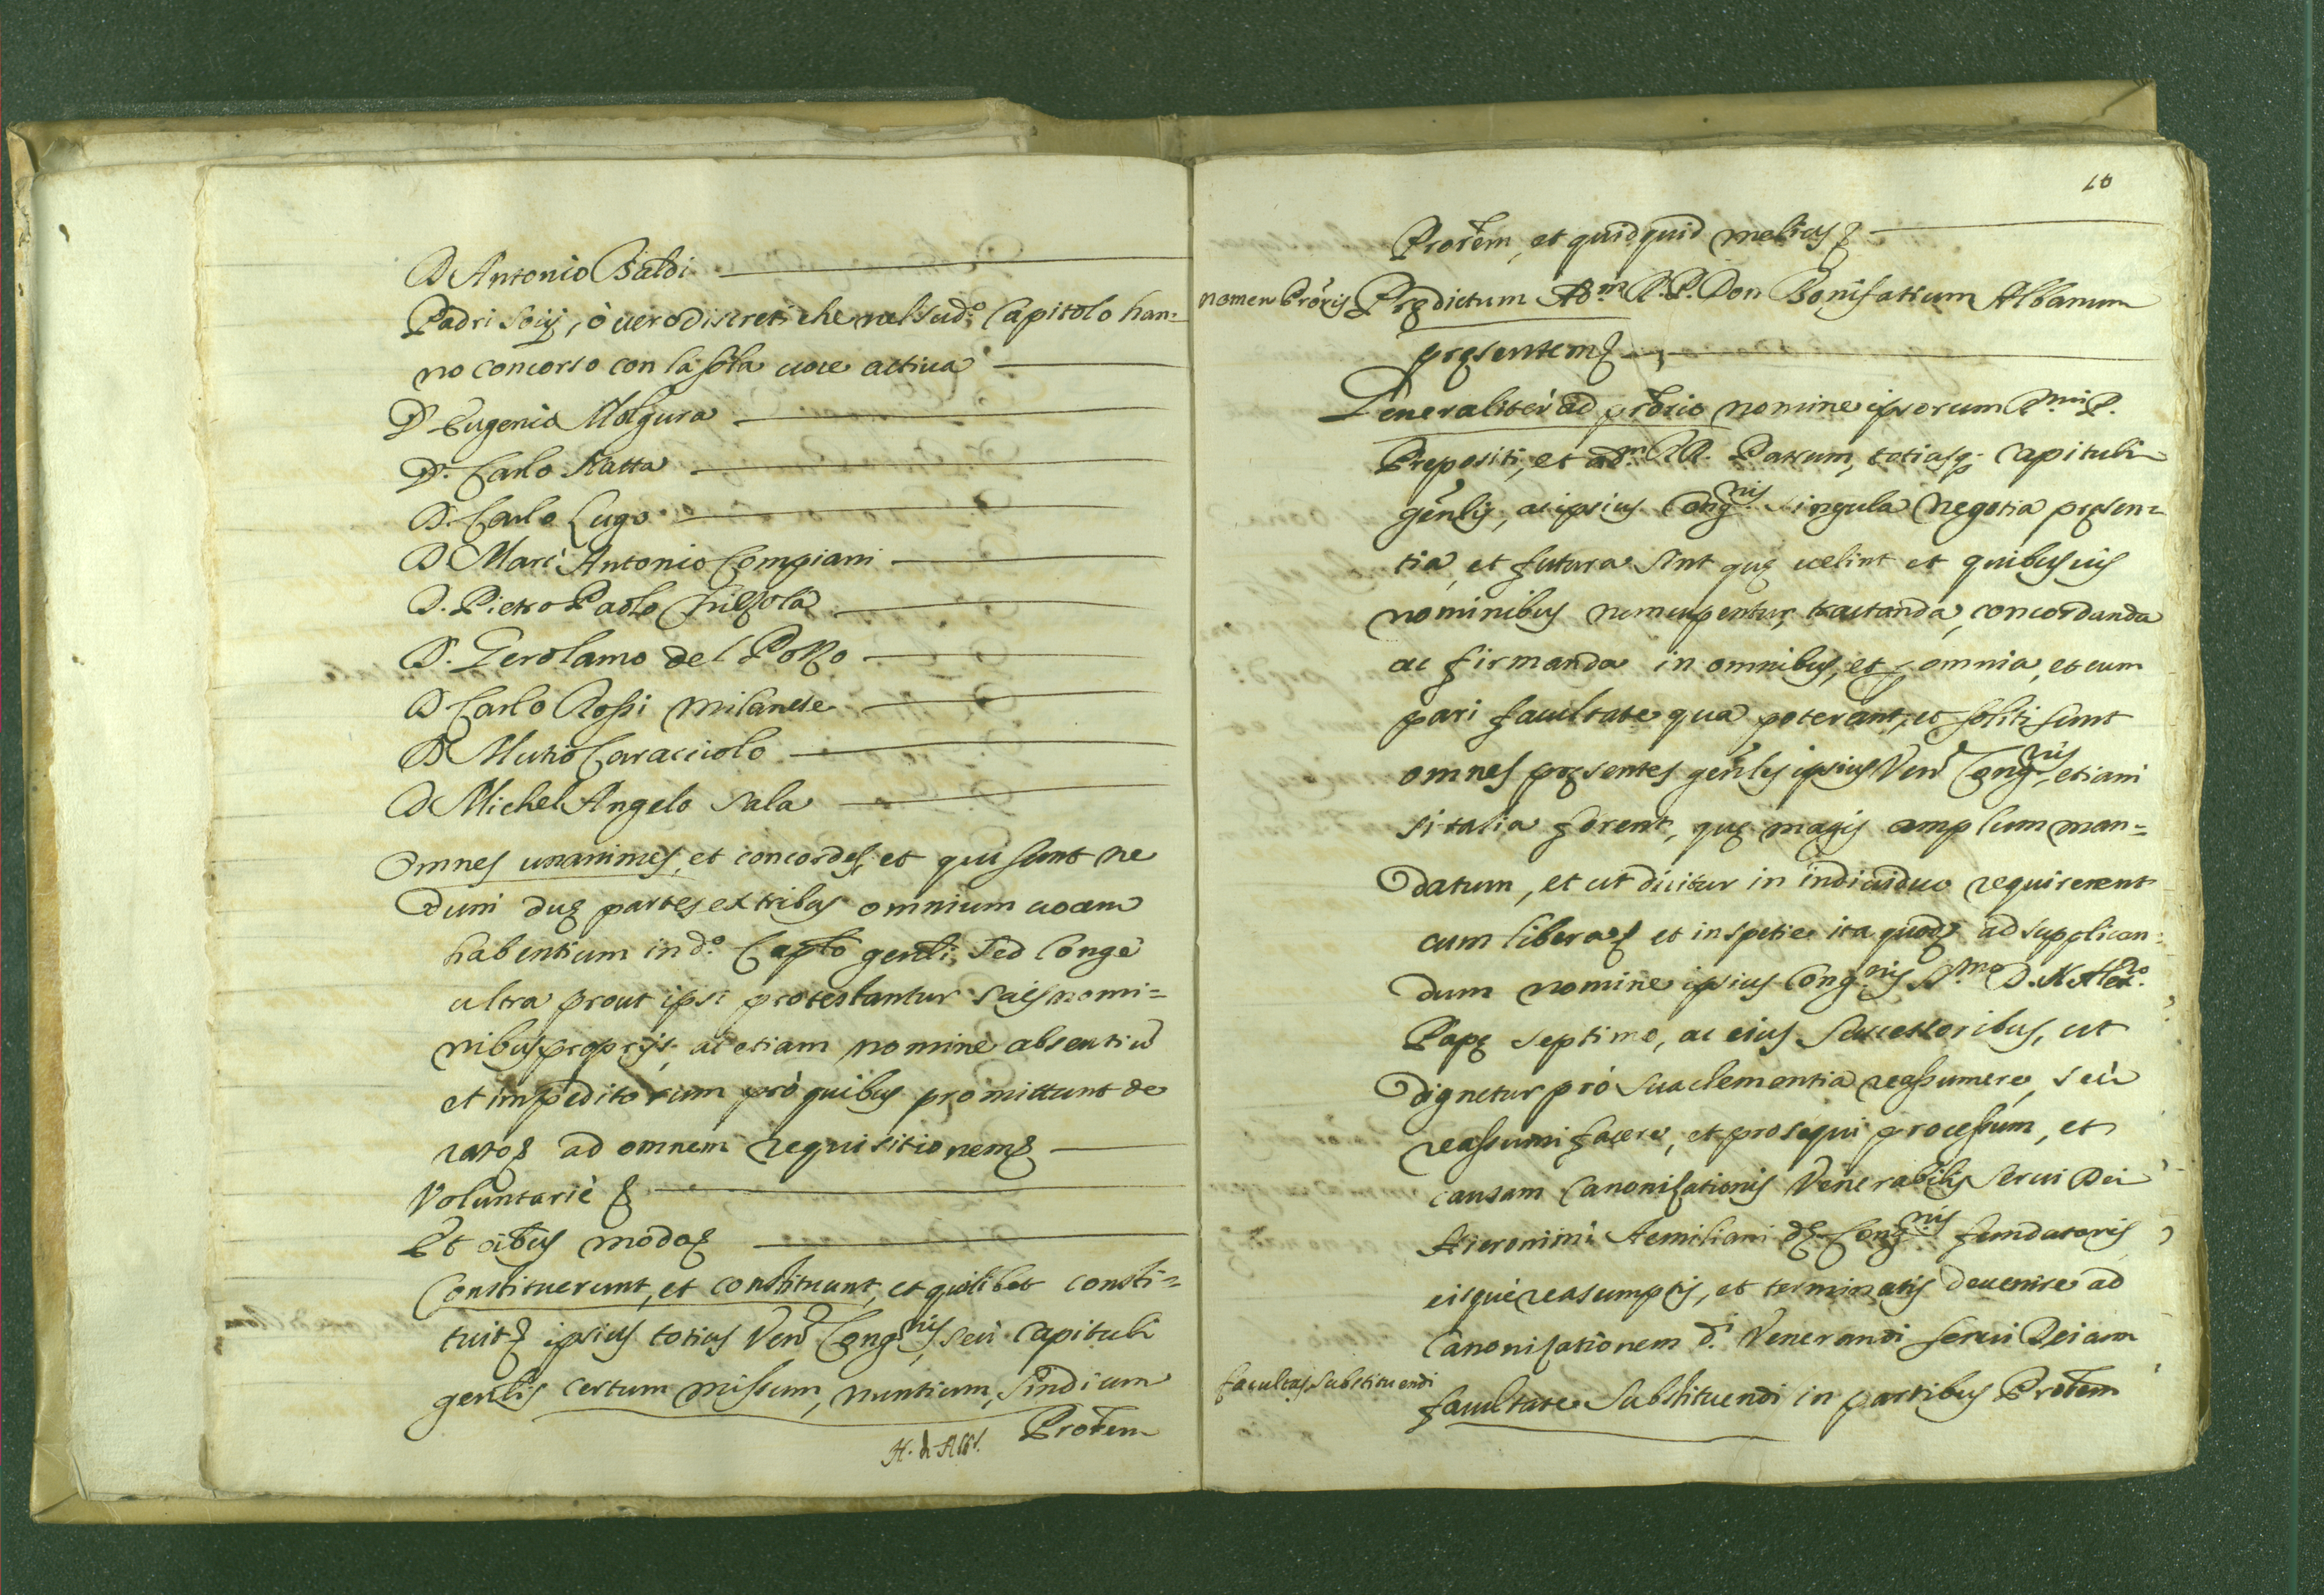 D Antonio Baldi
Padri Socij, ò uero discreti che nel sud.º Capitolo han=
no concorso con la sola uoce actiua
D Eugenio Molgura
D. Carlo Natta
D. Carlo Lugo
D Marc' Antonio Compiani
D. Pietro Paolo
D. Gerolamo del Pozzo
D Carlo Rossi Milanese
D Mutio Caracciolo
D Michel Angelo Sala
Omnes unanimes, et concordes, et qui sunt ne
dum duę partes ex tribus omnium uocem
habentium in d.º Caplo genli, sed longè
ultra prout ipsi protestantur suis nomi=
nibus proprijs, ac etiam nomine absentiũ
et impeditorum prò quibus promittunt de
rato& ad omnem requisitionem&
Voluntariè &
Et oĩbus modo&
Constituerunt, et constituunt, et quilibet consti=
tuit& ipsius totius Ven Congnis, seù Capituli
genlis certum missum, nuntium, sindicum
Prorem
10
Prorem, et quidquid melius&
nomen Proris
Prędictum Adm R.P. Don Bonifatium Albanum
pręsentem&
Generaliter ad prõrio nomine ipsorum Rmi P.
Prepositi, et adm RR. Patrum, totiusq; Capituli
genlis, ac ipsius Congnis singula negotia pręsen=
tia, et futura sint quę uelint et quibusuis
nominibus nuncupentur, tractanda, concordanda
ac firmanda in omnibus, et p omnia, et cum
pari facultate qua poterant, et soliti sunt
omnes pręsentes genles ipsius Ven Congnis, etiam
si talia forent, quę magis amplum man=
datum, et ut dicitur in indiuiduo requirerent
cum libera& et in spetie ita quod& ad supplican=
dum nomine ipsius Congnis Smo D.N. Alexro.
Papę Septimo, ac eius Successoribus, ut
dignetur prò sua clementia reassumere, seù
reassumi facere, et prosequi processum, et
causam Canonisationis Venerabilis Serui Dei
Hieronimi Aemiliani dę Congnis fundatoris
eisque reasumptis, et terminatis deuenire ad
Canonisationem d.i Venerandi serui Dei cum
facultas substituendi
facultate substituendi in partibus Prorem